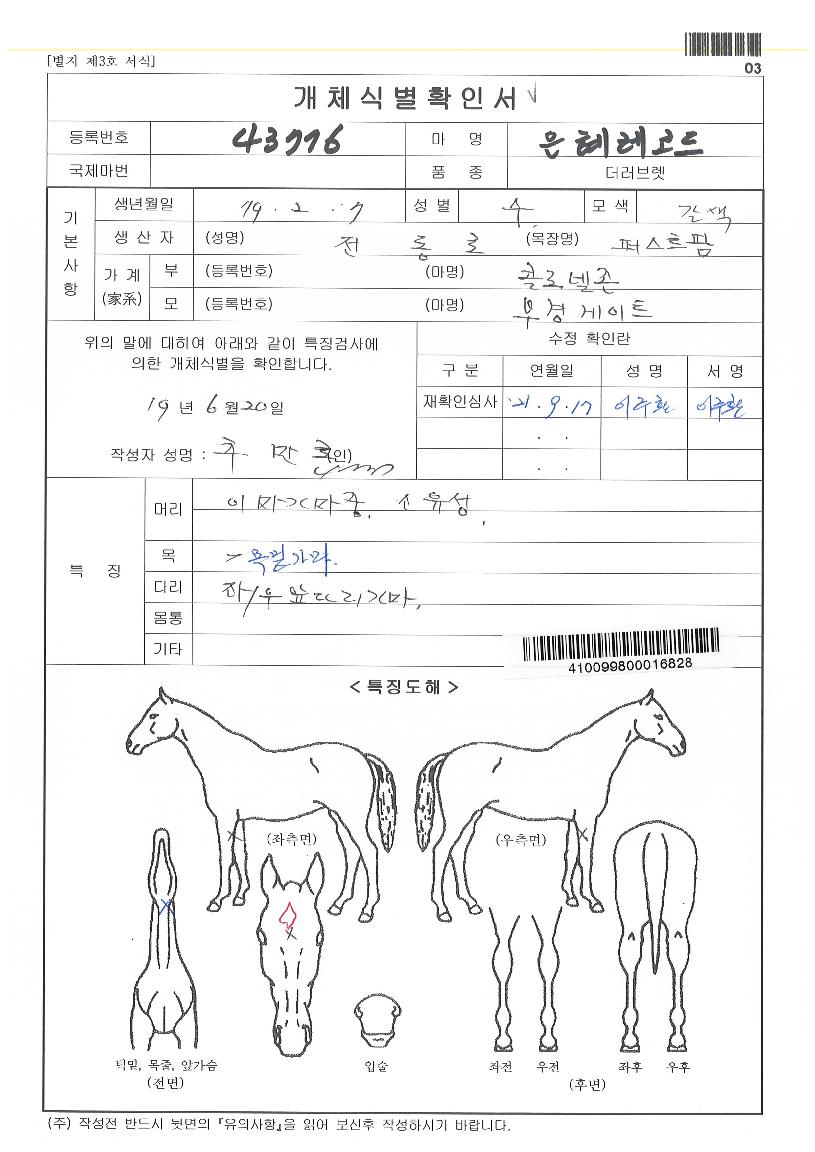 [별지 제3호 서식]
03
개체식별확인서
등록번호 43776 마 명 은혜레코드
국제마번 품 종 더러브렛
기본사항
생년월일 19 . 2 . 7 성 별 수 모 색 갈색
생 산 자 (성명) 전 통 로 (목장명) 퍼스트팜
가 계 (家系) 부 (등록번호) (마명) 콜로넬존
모 (등록번호) (마명) 부경게이트
위의 말에 대히여 아래와 같이 특징검사에
의한 개체식별을 확인합니다.
19 년 6 월 20 일
작성자 성명 : (인)
수정 확인란
구 분 연월일 성 명 서 명
재확인심사 21 . 9 . 17 이주환 이주환
. .
. .
특 징
머리 이마가마중, 소유성,
목 목밑가마.
다리 좌/우앞다리가마,
몸통
기타
410099800016828
< 특징도해 >
(좌측면) (우측면)
턱밑, 목줄, 앞가슴
(전면)
입술
좌전 우전 좌후 우후
(후면)
(주) 작성전 반드시 뒷면의 『유의사항』을 읽어 보신후 작성하시기 바랍니다.